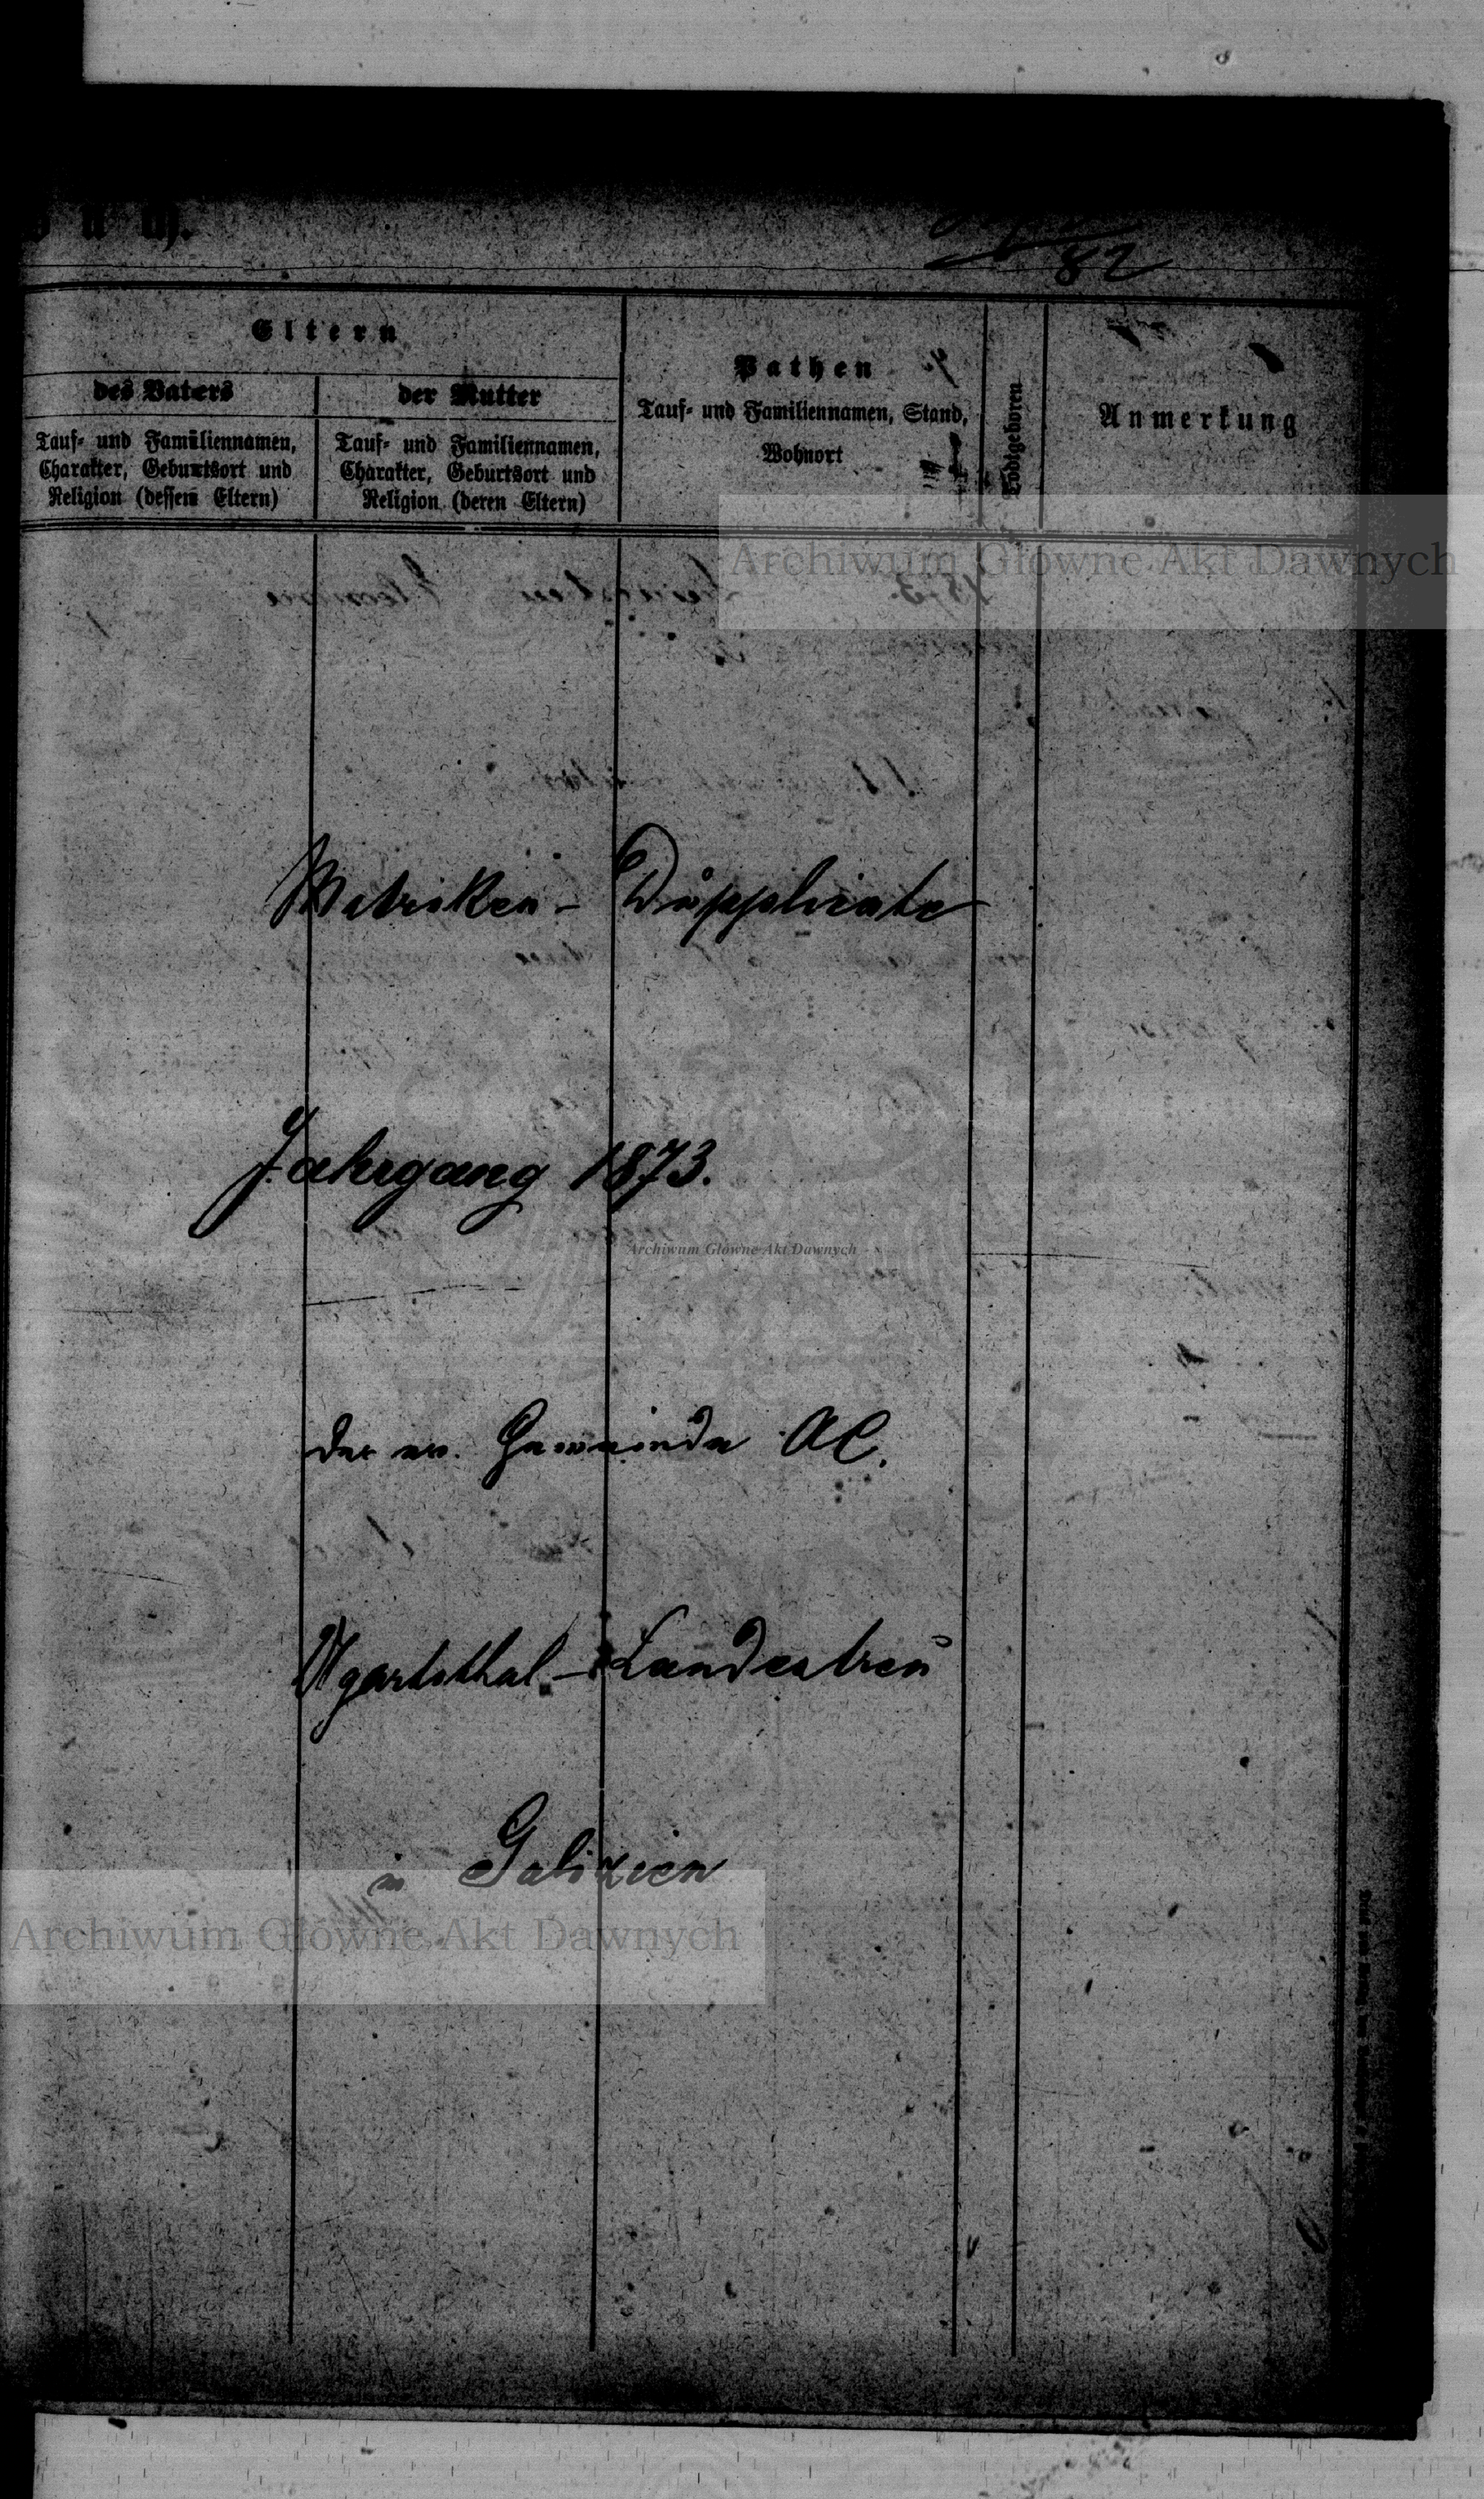 82
Eltern
des Vaters
der Mutter
Tauf- und Familiennamen,
Charakter, Geburtsort und
Religion (dessen Eltern)
Tauf- und Familiennamen,
Charakter, Geburtsort und
Religion (deren Eltern)
Pathen
Tauf- und Familiennamen, Stand,
Wohnort
Todtgeboren
Anmerkung
Archiwum Główne Akt Dawnych
Matriken - Dupplicate
Jahrgang 1873.
Archiwum Główne Akt Dawnych
der ev. Gemeinde AC.
Ugartsthal - Landestreu
in Galizien
Archiwum Główne Akt Dawnych